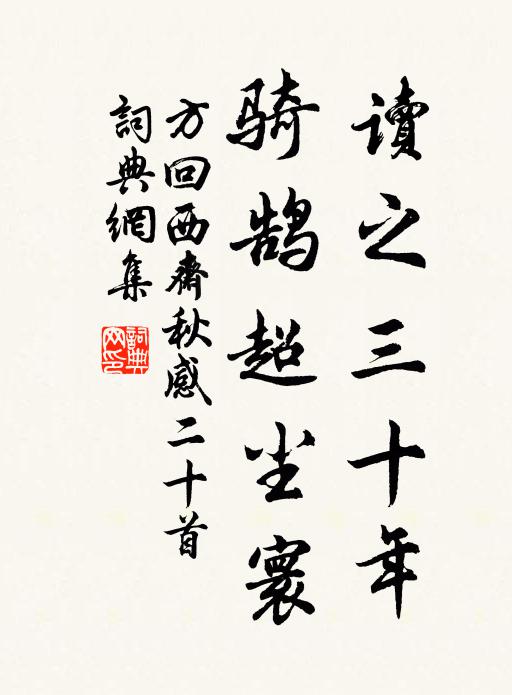 讀之三十年
騎鵠超尘寰
方回西齋秋感二十首
詞典網集
詞典网印